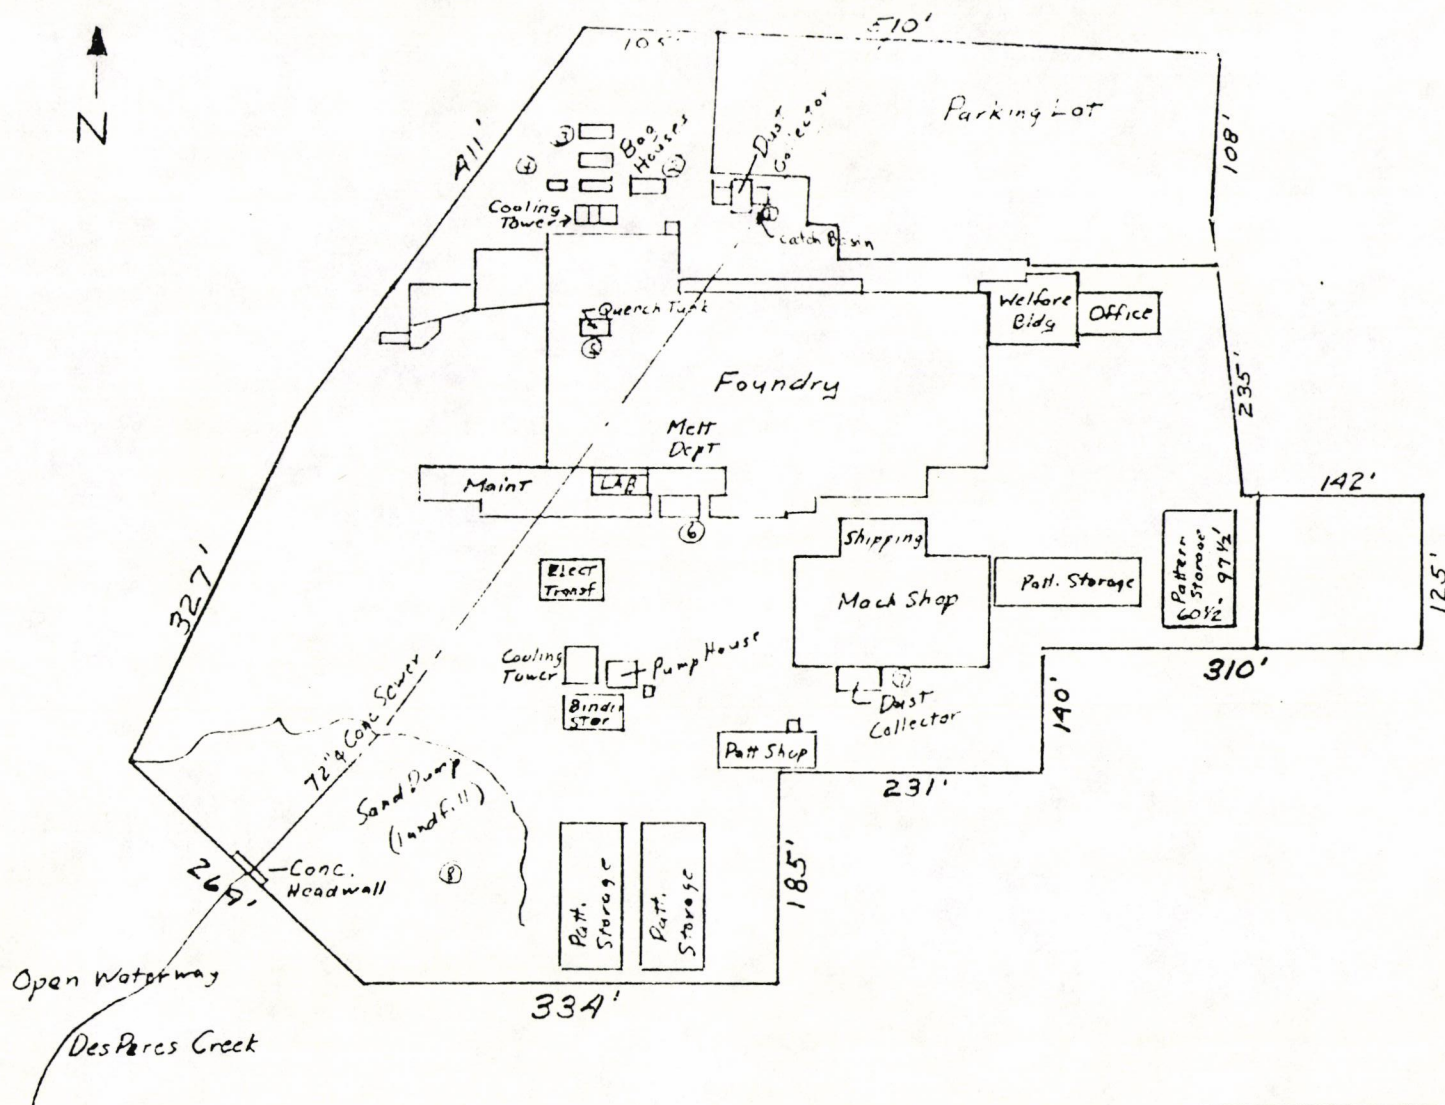 N
105'
510'
Parking Lot
108'
411'
3
4
Bag
Houses
2
Dust
Collector
Cooling
Tower
Catch Basin
Quench Tank
Welfare
Bldg
Office
235'
Foundry
Melt
Dept
Maint
LAB
6
142'
125'
327'
Shipping
Elect
Transf
Mach Shop
Patt. Storage
Pattern
Storage
60 1/2 - 97 1/2'
310'
Cooling
Tower
Pump House
Binder
Stor
Dust
Collector
140'
Patt Shop
231'
72"φ Conc Sewer
Sand Dump
(landfill)
8
185'
264'
Conc.
Headwall
Patt.
Storage
Patt.
Storage
334'
Open Waterway
Des Peres Creek